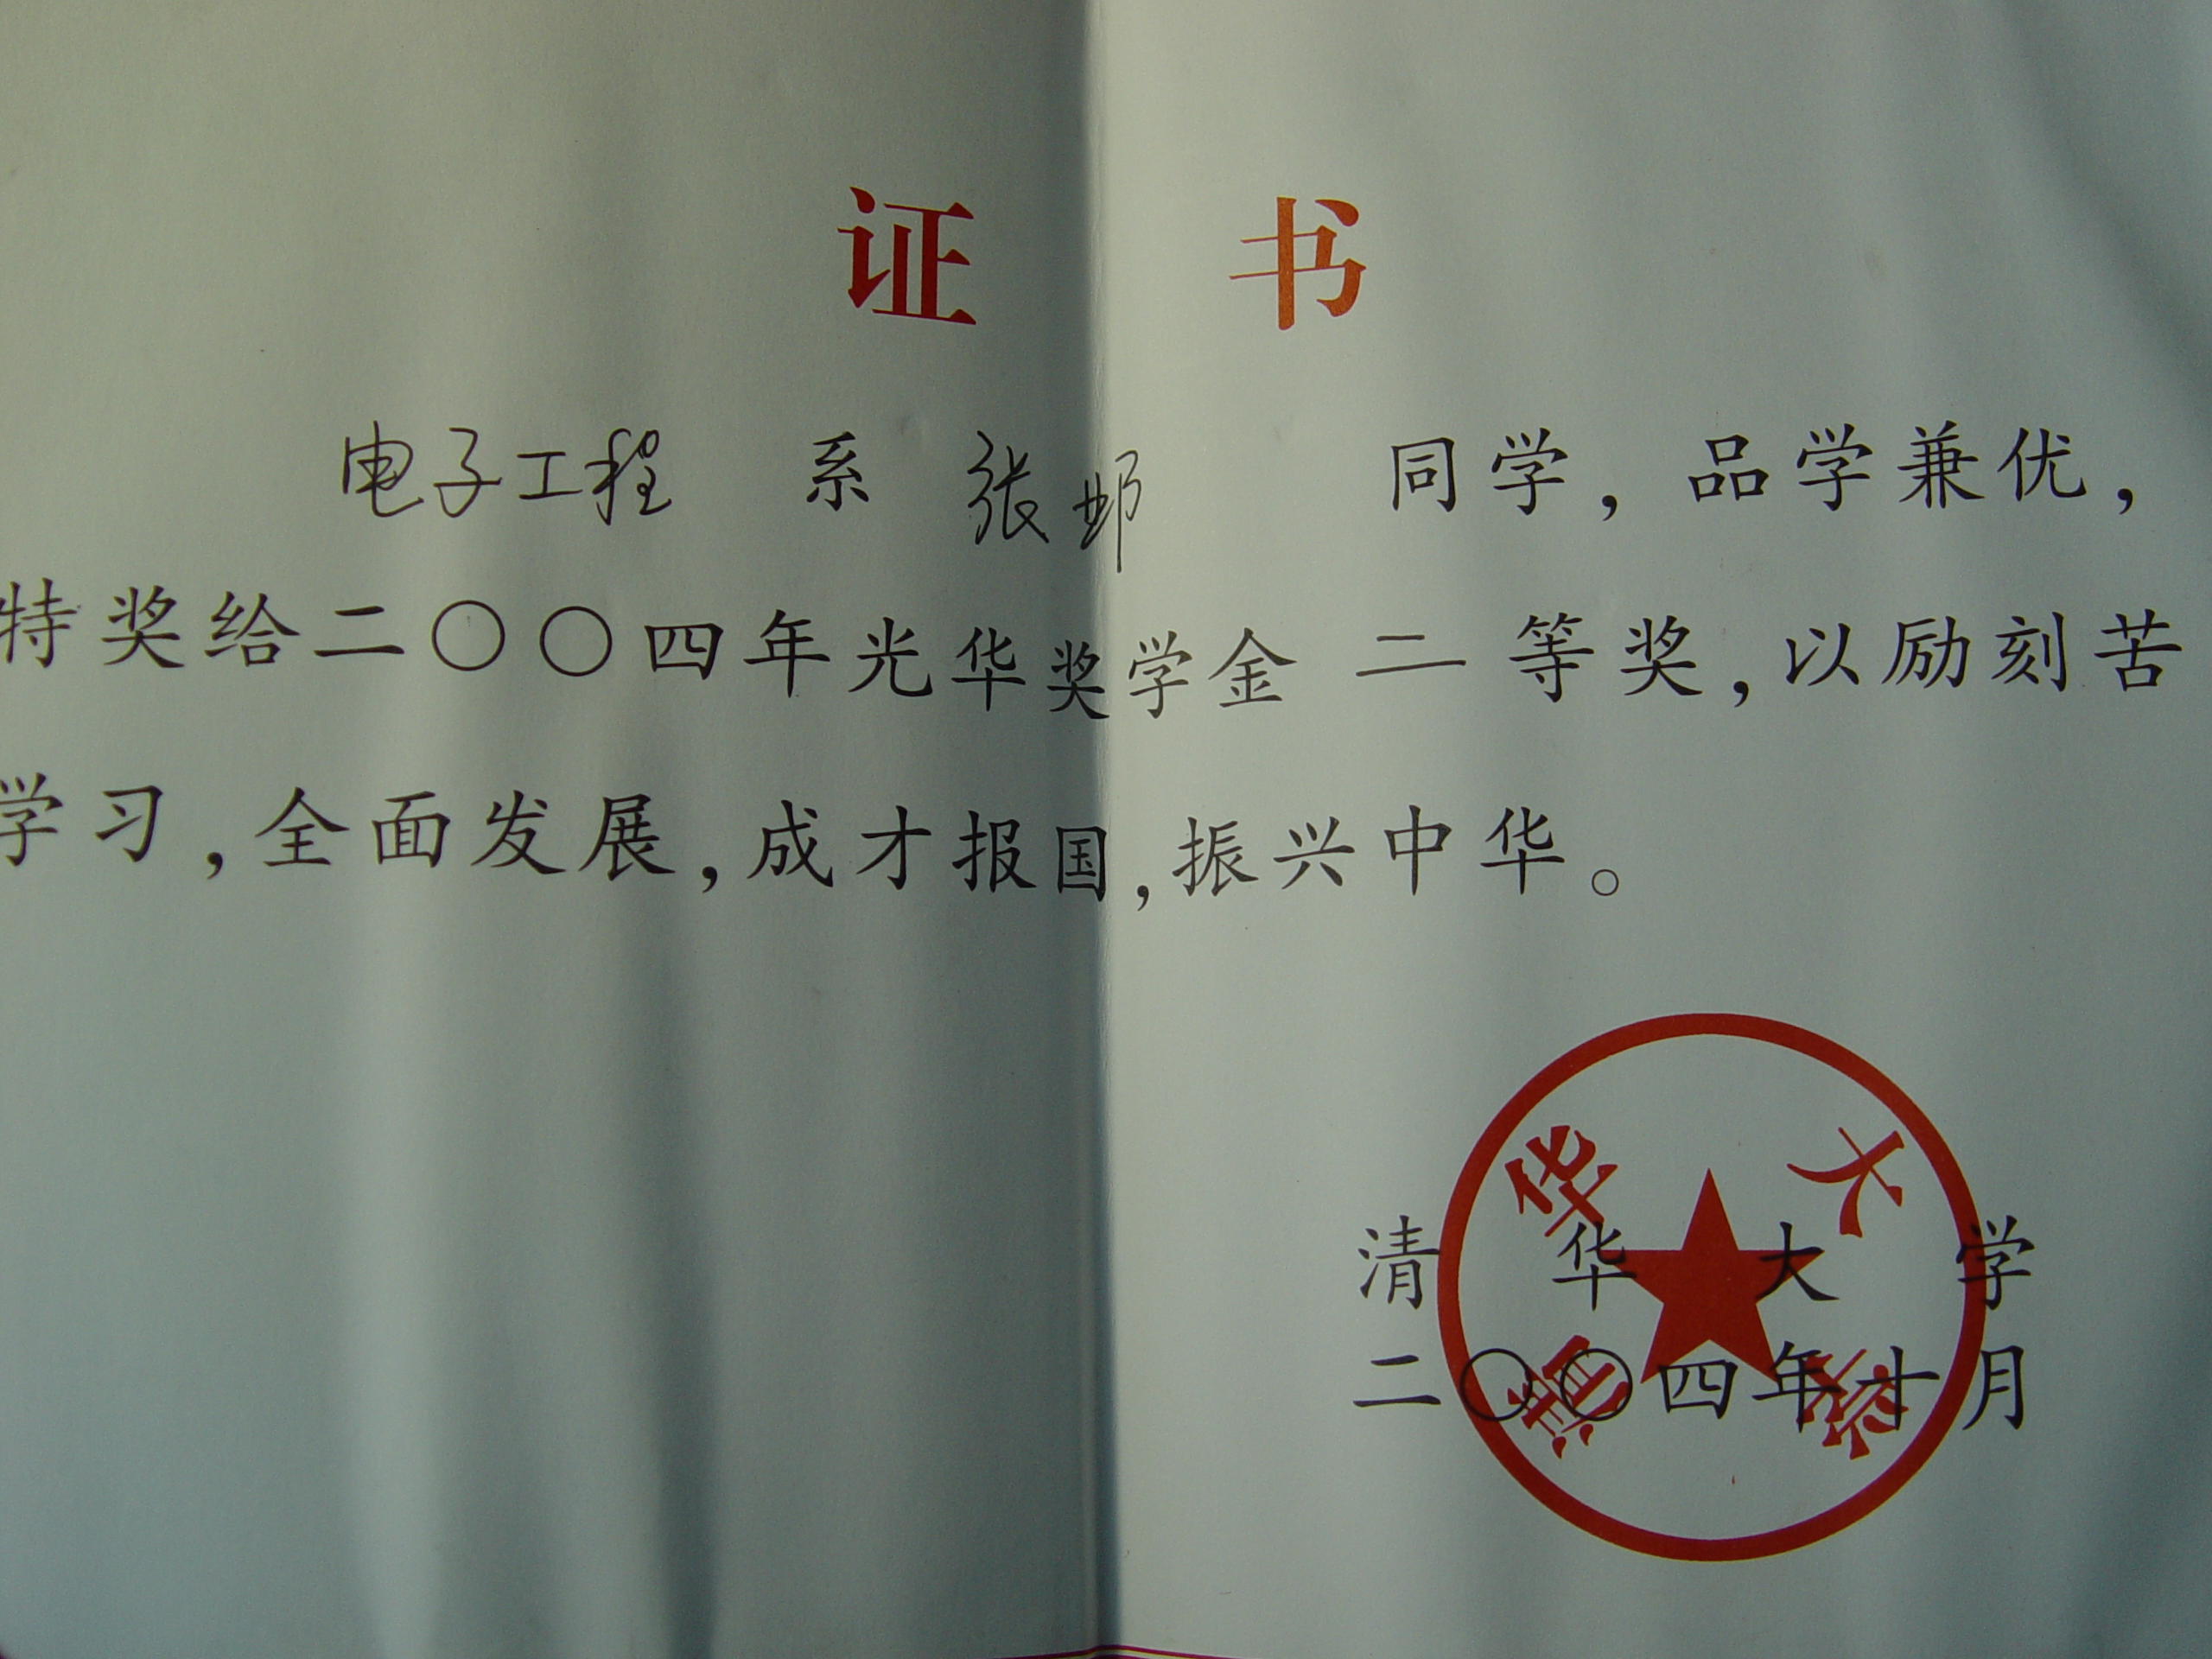 证书
电子工程 系 张邯 同学，品学兼优，
特奖给二〇〇四年光华奖学金 二 等奖，以励刻苦
学习，全面发展，成才报国，振兴中华。
清华大学
清华大学
二〇〇四年十月